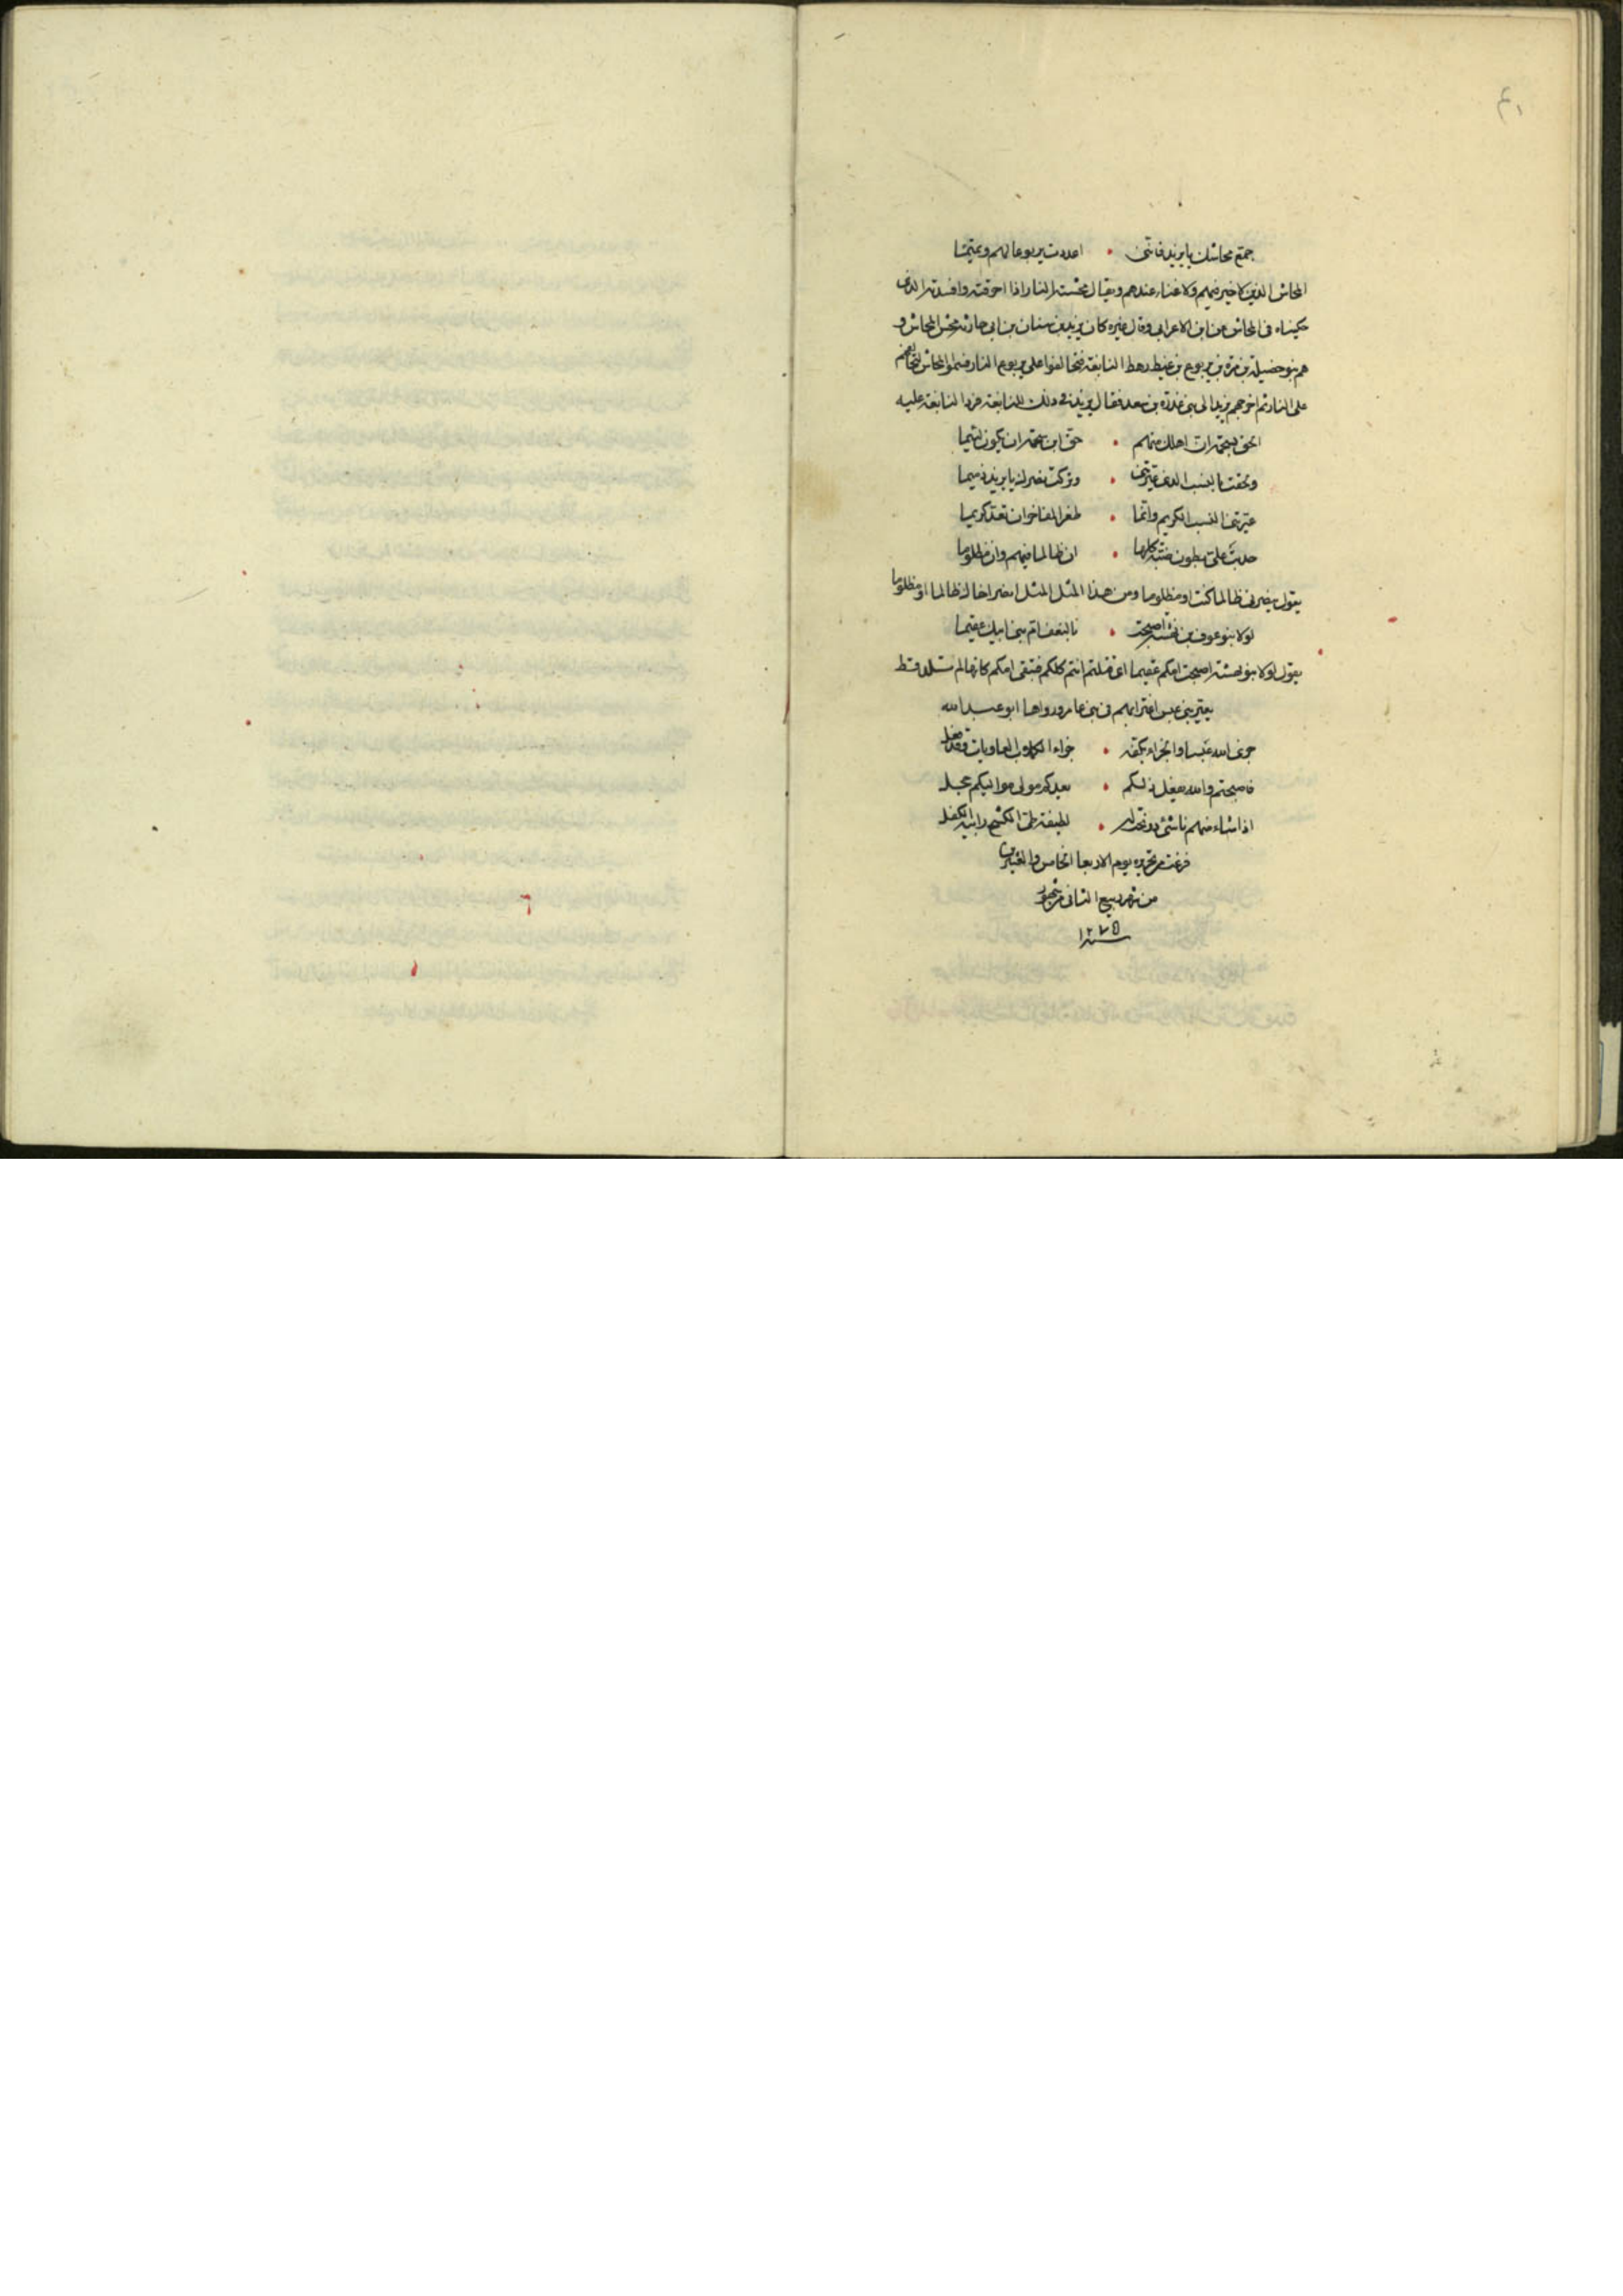 ٤١
جمّع محاشك يا يزيد فانّنى • اعددت يربوعا لهم وتميما
المحاش الذين لا خير فيهم ولا غناء عندهم ويقال محشته النار اذا احرقته وافسدته الذى
حكيناه فى المحاش عن ابن الاعرابى وقال غيره كان يزيد بن سنان بن ابى حارثه محش المحاش و
هم بنو خصيلة بن مرة بن يربوع بن غيظ رهط النابغة فتحالفوا على يربوع النار فسموا المحاش لتحالفهم
على النار ثم اخرجهم يزيد الى بنى عذره بن سعد فقال يزيد فى ذلك للنابغة فرد النابغة عليه
حق ابن ان يكون لئيما
ولحقت بالنسب الذى عيّرتنى • وتركت نصرك يا يزيد ذميما
عيّرتنى النسب الكريم وانّما • ظفر المفاخر ان تعدّ كريما
حدبت علىّ بطون ضنّة كلها • ان ظالما فيهم وان مظلوما
يقول ينصرنى ظالما كنت او مظلوما ومن هذا المثل المثل انصر اخاك ظالما او مظلوما
لولا بنو عوف بن بهثه اصبحت • بالنعف امّ بنى ابيك عقيما
يقول لولا بنو بهثه اصبحت امكم عقيما اى قتلتم انتم كلكم فتبقى امكم كانها لم تلد قط
يعيّر بنى عبس اغترابهم فى بنى عامر ورواها ابو عبد الله
جزى الله عبسا والجزاء بكفه • جزاء الكلاب العاويات وقد فعل
فاصبحتم والله يفعل ذلكم • يعدكم مولى مواليكم عجل
اذا شاء منهم ناشئ • لطيفة طىّ الكشح رابية الكفل
فرغت من تحريره يوم الاربعا الخامس والعشرين
من شهر ربيع الثانى من شهور
سنه ١٢٧٥